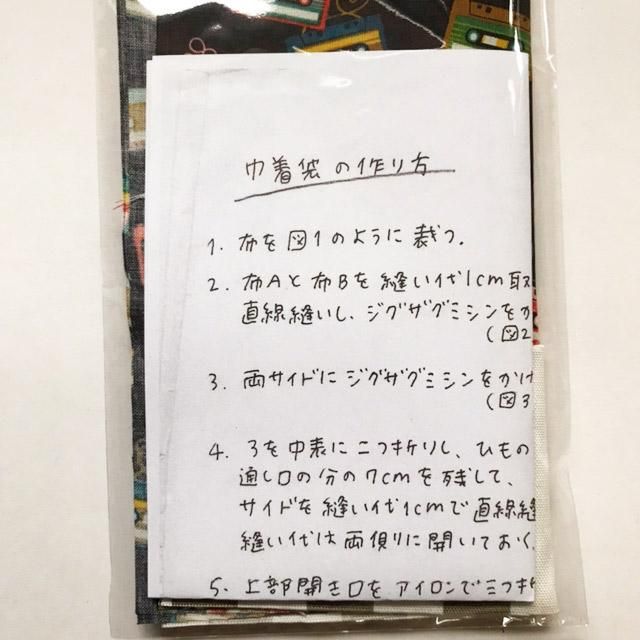 巾着袋の作り方
1. 布を図1のように裁つ.
2. 布Aと布Bを縫い代1cm取
直線縫いし、ジグザグミシンをか
(図2
3. 両サイドにジグザグミシンをかけ
(図3
4. 3を中表に二つ折りし、ひもの
通し口の分の7cmを残して、
サイドを縫い代1cmで直線縫
縫い代は両側りに開いておく.
5. 上部開き口をアイロンで三つ折